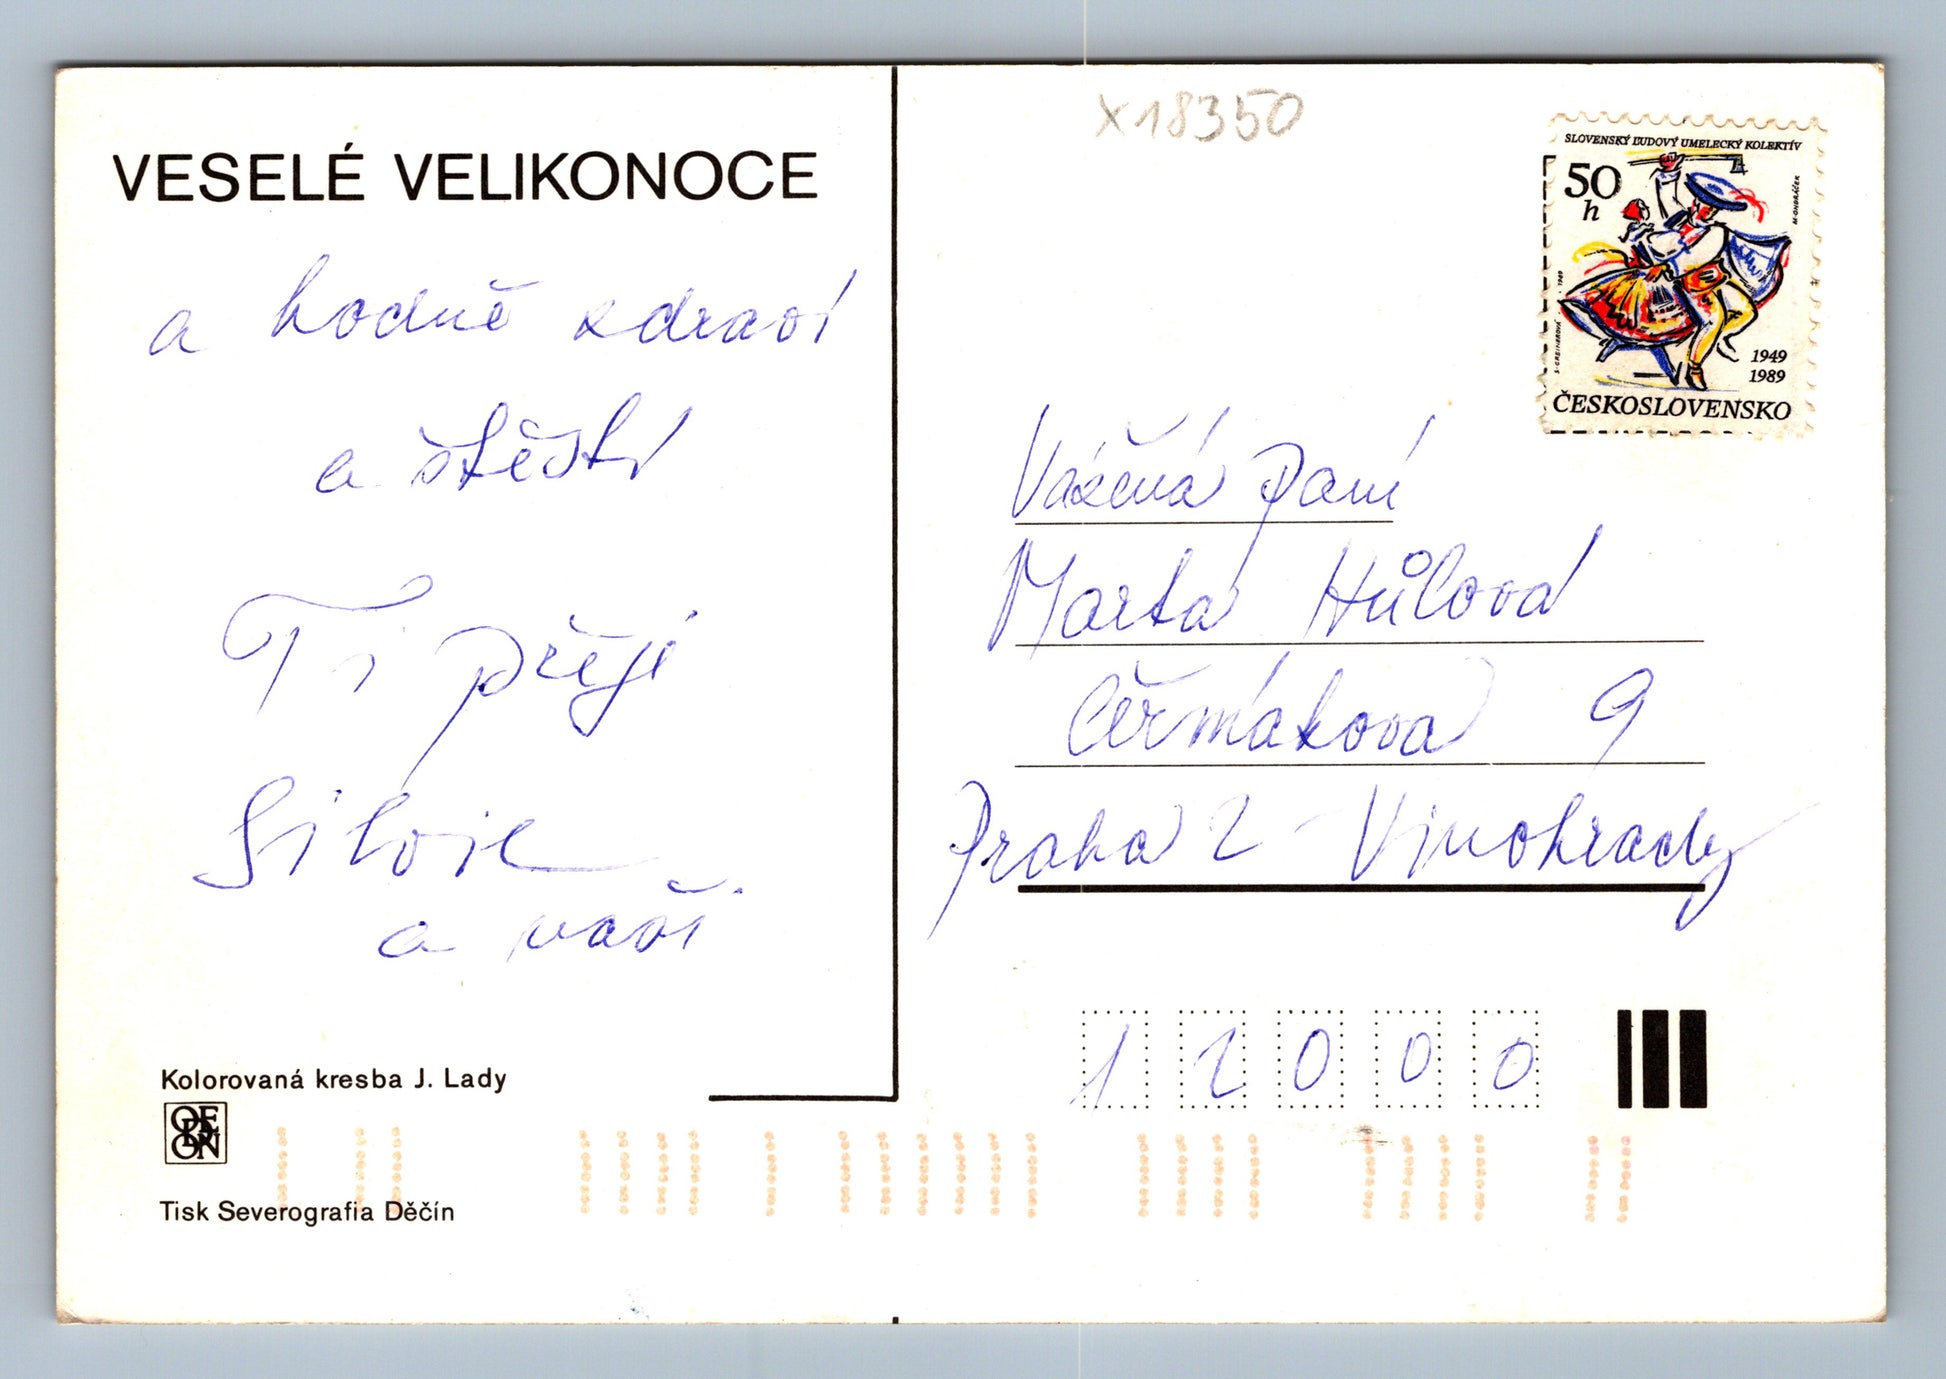 VESELÉ VELIKONOCE
a hodně zdraví
a štěstí
Ti přeji
Silvie
a naši
Kolorovaná kresba J. Lady
ODEON
Tisk Severografia Děčín
X18350
SLOVENSKÝ ĽUDOVÝ UMELECKÝ KOLEKTÍV
50
h
M. ONDRÁČEK
S. GREINEROVÁ · 1989
1949
1989
ČESKOSLOVENSKO
Vážená paní
Marta Hůlová
Čermákova 9
Praha 2 - Vinohrady
12000